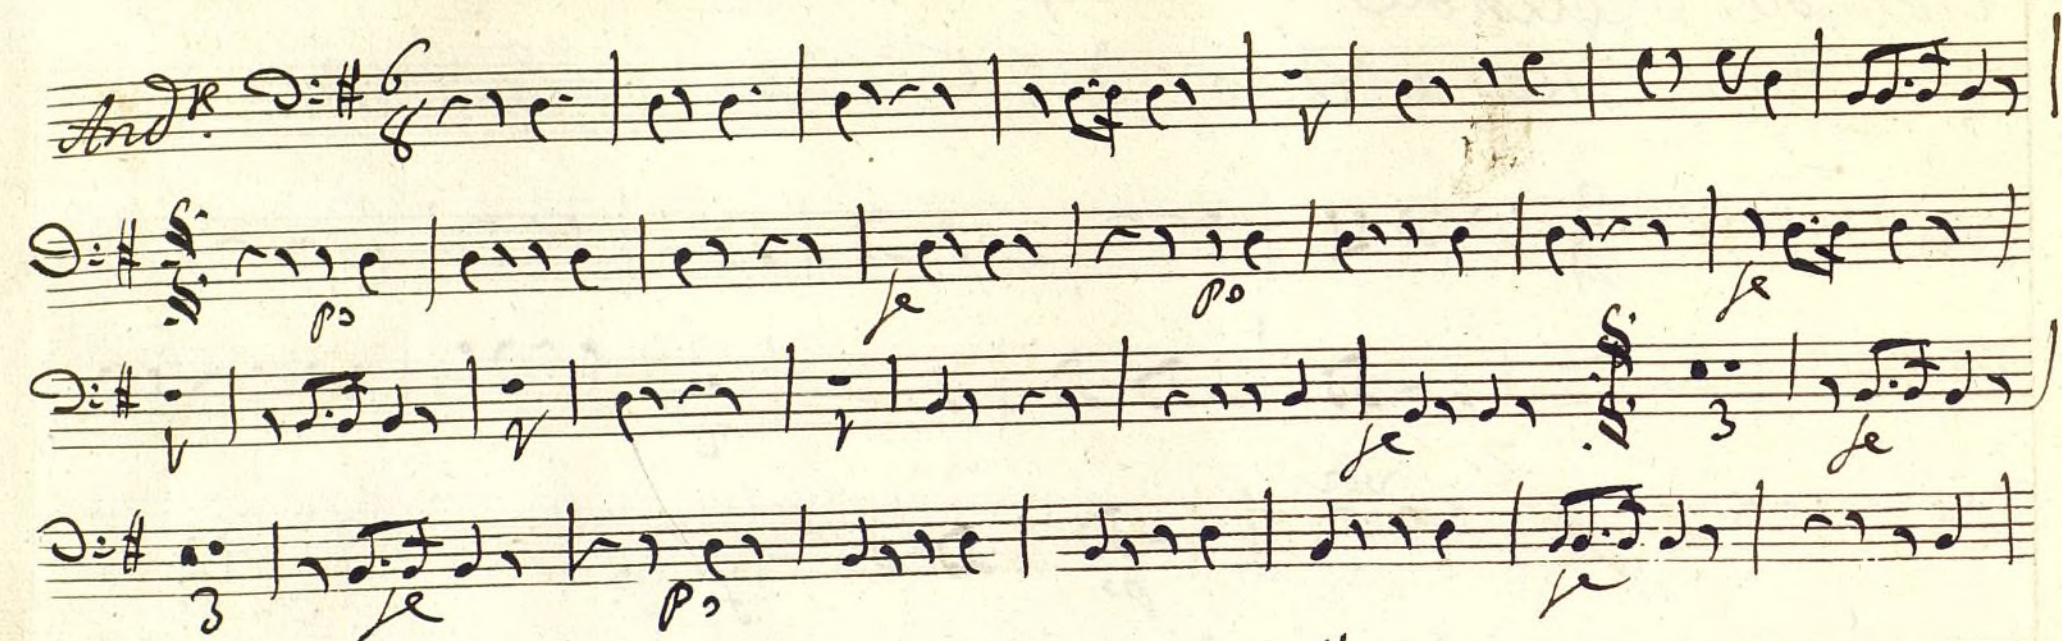 And.te 6 8 1
po fe po fe
1 1 1 fe 3 fe
3 fe po fe